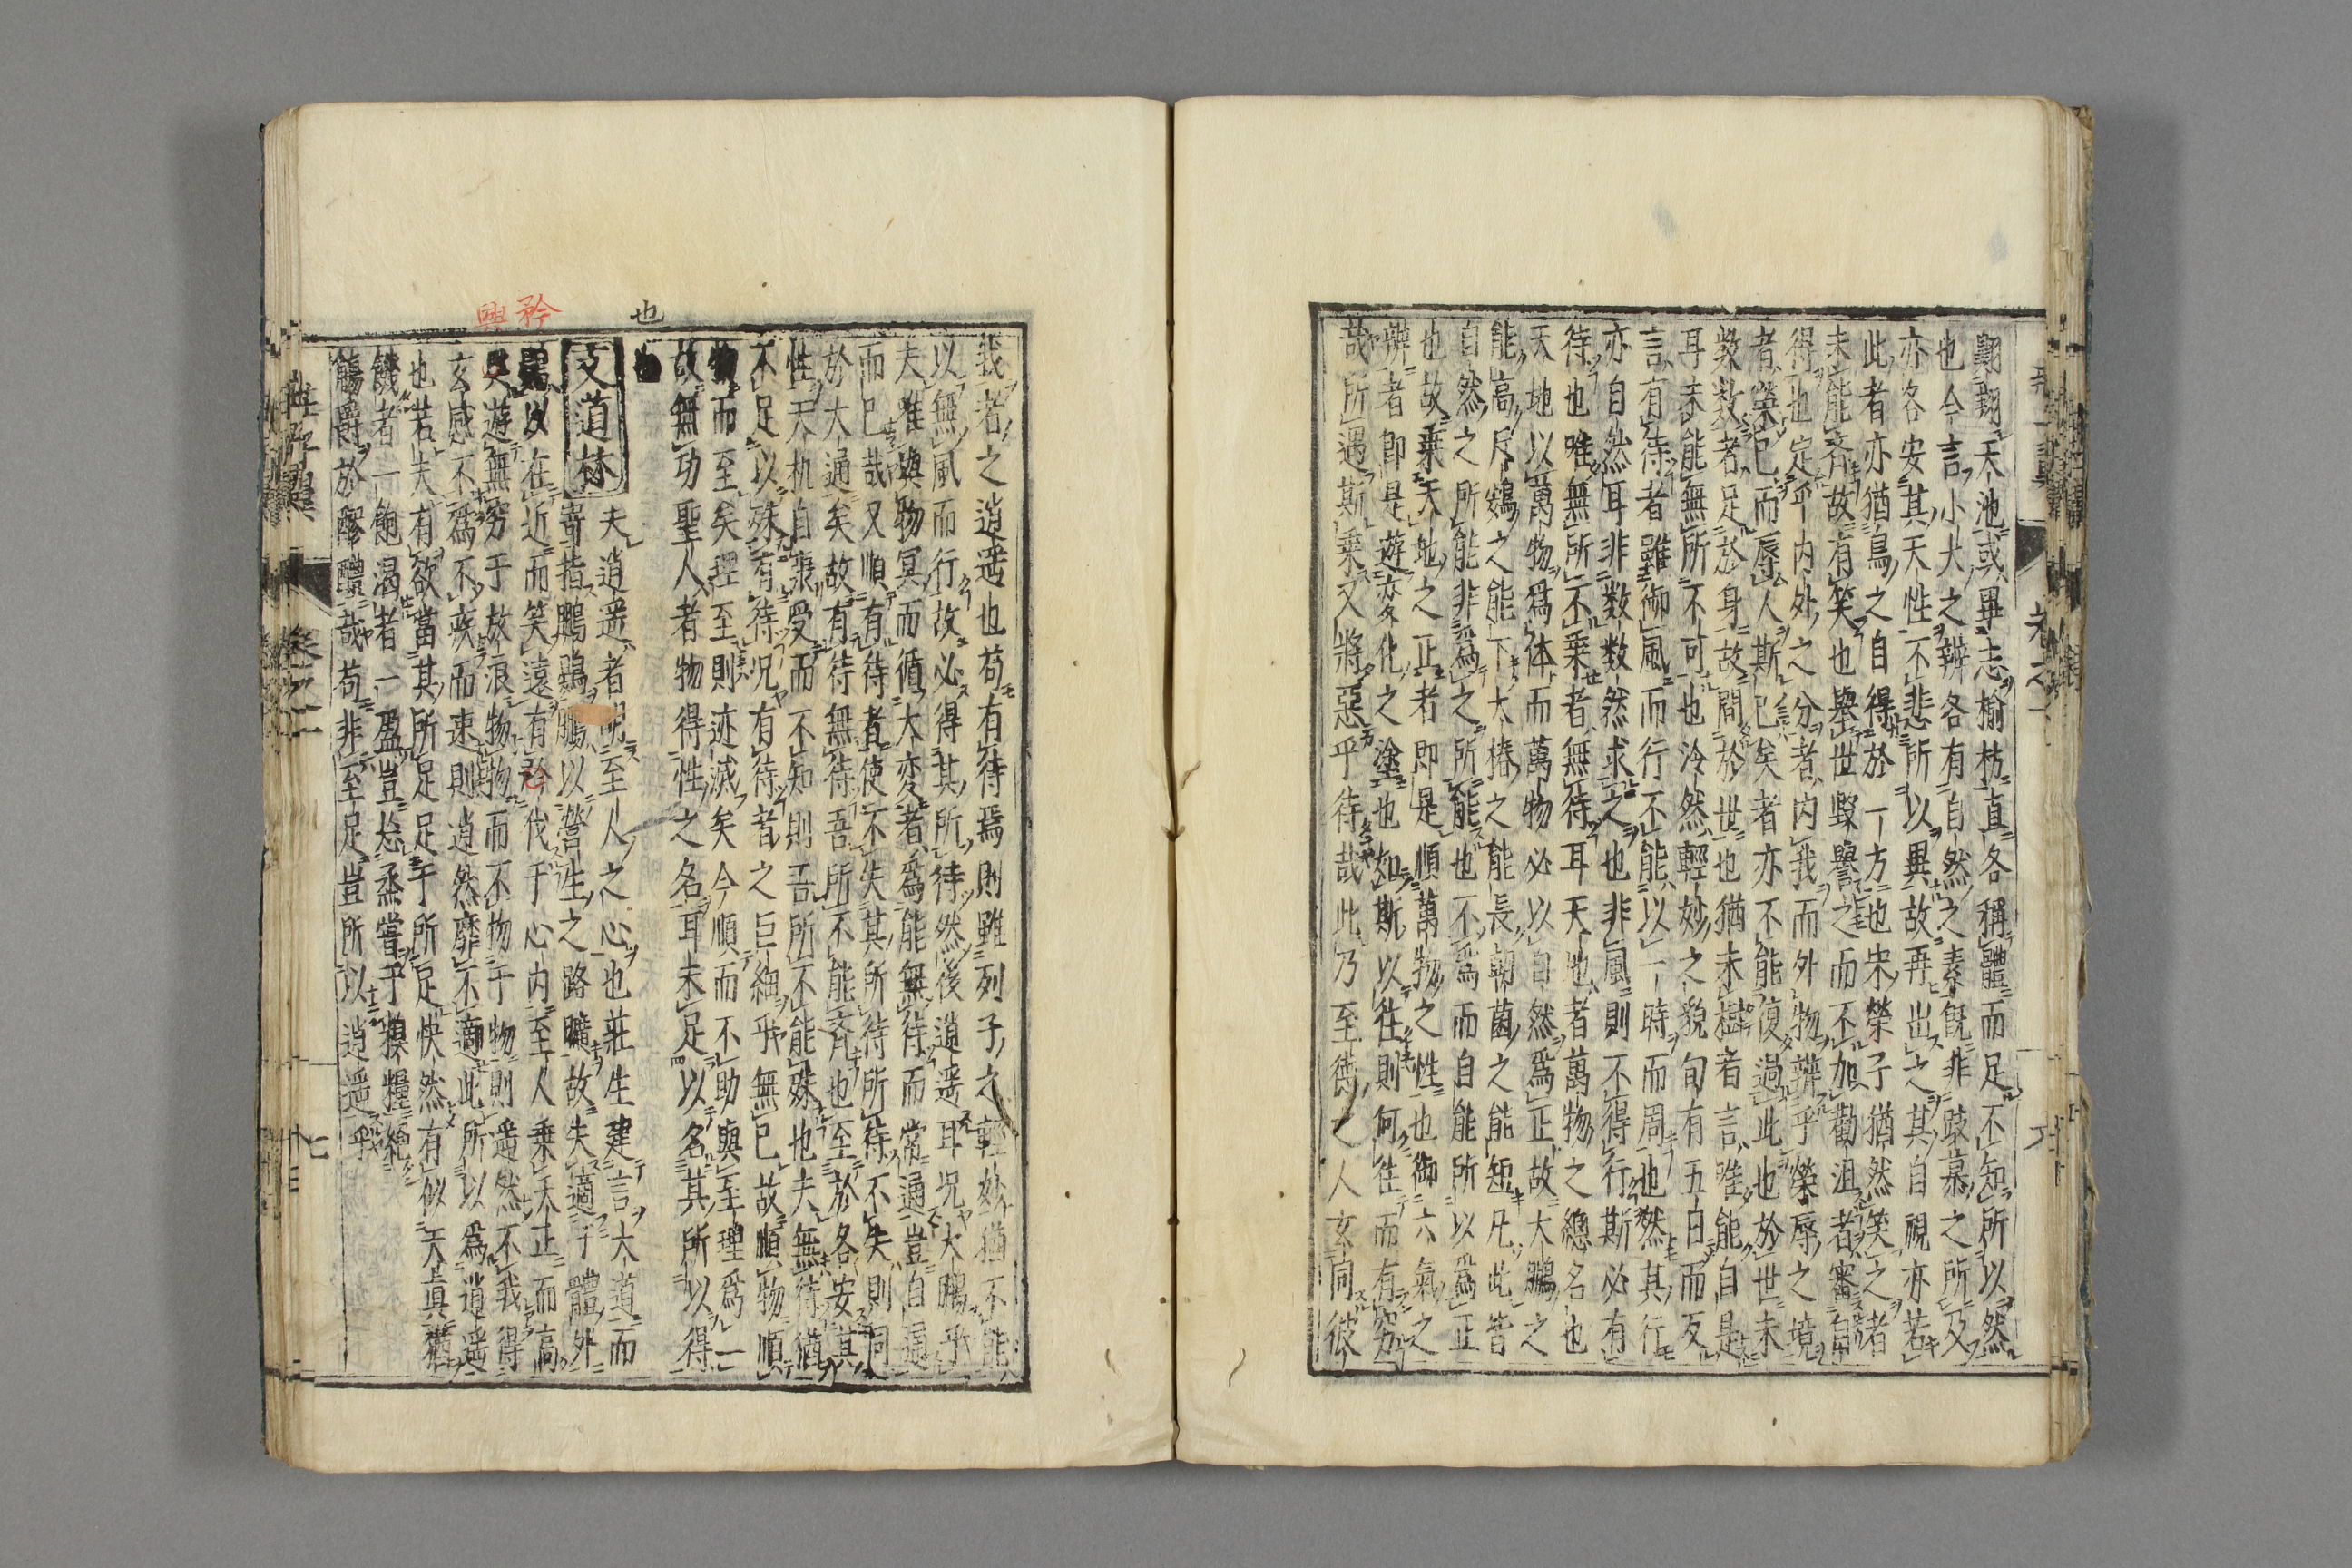 翺翔天池或畢志榆枋直各稱體而足不知所以然
也今言小大之辨各有自然之素既非跂慕之所及
亦各安其天性不悲所以異故再出之其自視亦若
此者亦猶鳥之自得於一方也宋榮子猶然笑之者
未能斉故有笑也擧世譽之而不加勸沮者審自
得也定乎内外之分者内我而外物辨乎榮辱之境
者榮己而辱人斯已矣者亦不能復過此也於世未
數數者足於身故間於世也猶未樹者言唯能自是
耳未能無所不可也泠然輕妙之貌旬有五日而反
言有待者雖御風而行不能以一時而周也然其行
亦自然耳非数数然求之也非風則不得行斯必有
待也唯無所不乗者無待耳天地者萬物之總名也
天地以萬物爲体而萬物必以自然爲正故大鵬之
能高尺鷃之能下大椿之能長朝菌之能短凡此皆
自然之所能非爲之所能也不爲而自能所以爲正
也故乗天地之正者即是順萬物之性也御六氣之
辨者即是遊変化之塗也如斯以徃則何徃而有窮
哉所遇斯乗又將惡乎待哉此乃至德之人玄同彼
我者之逍遥也苟有待焉則雖列子之輕妙猶不能
以無風而行故必得其所待然後逍遥耳况大鵬乎
夫唯與物冥而循大変者爲能無待而常通豈自通
而已哉又順有待者使不失其所待所待不失則同
於大通矣故有待無待吾所不能斉也至於各安其
性天机自張受而不知則吾所不能殊也夫無待猶
不足以殊有待况有待者之巨細乎無已故順物順
物而至矣理至則迹滅矣今順而不助與至理爲一
故無功聖人者物得性之名耳未足以名其所以得
也
也
文道林
夫逍遥者明至人之心也莊生建言大道而
寄指鵬鷃鵬以營生之路曠故失適于體外
鷃以在近而笑遠有矜伐于心内至人乗天正而高
矜
興
遊無窮于放浪物物而不物于物則遥然不我得
玄感不爲不疾而速則逍然靡不適此所以爲逍遥
也若夫有欲當其所足足于所足快然有似天眞猶
饑者一飽渴者一盈豈忘烝嘗乎糗糧絶
觴爵於醪醴哉苟非至足豈所以逍遥乎
卷之一
七